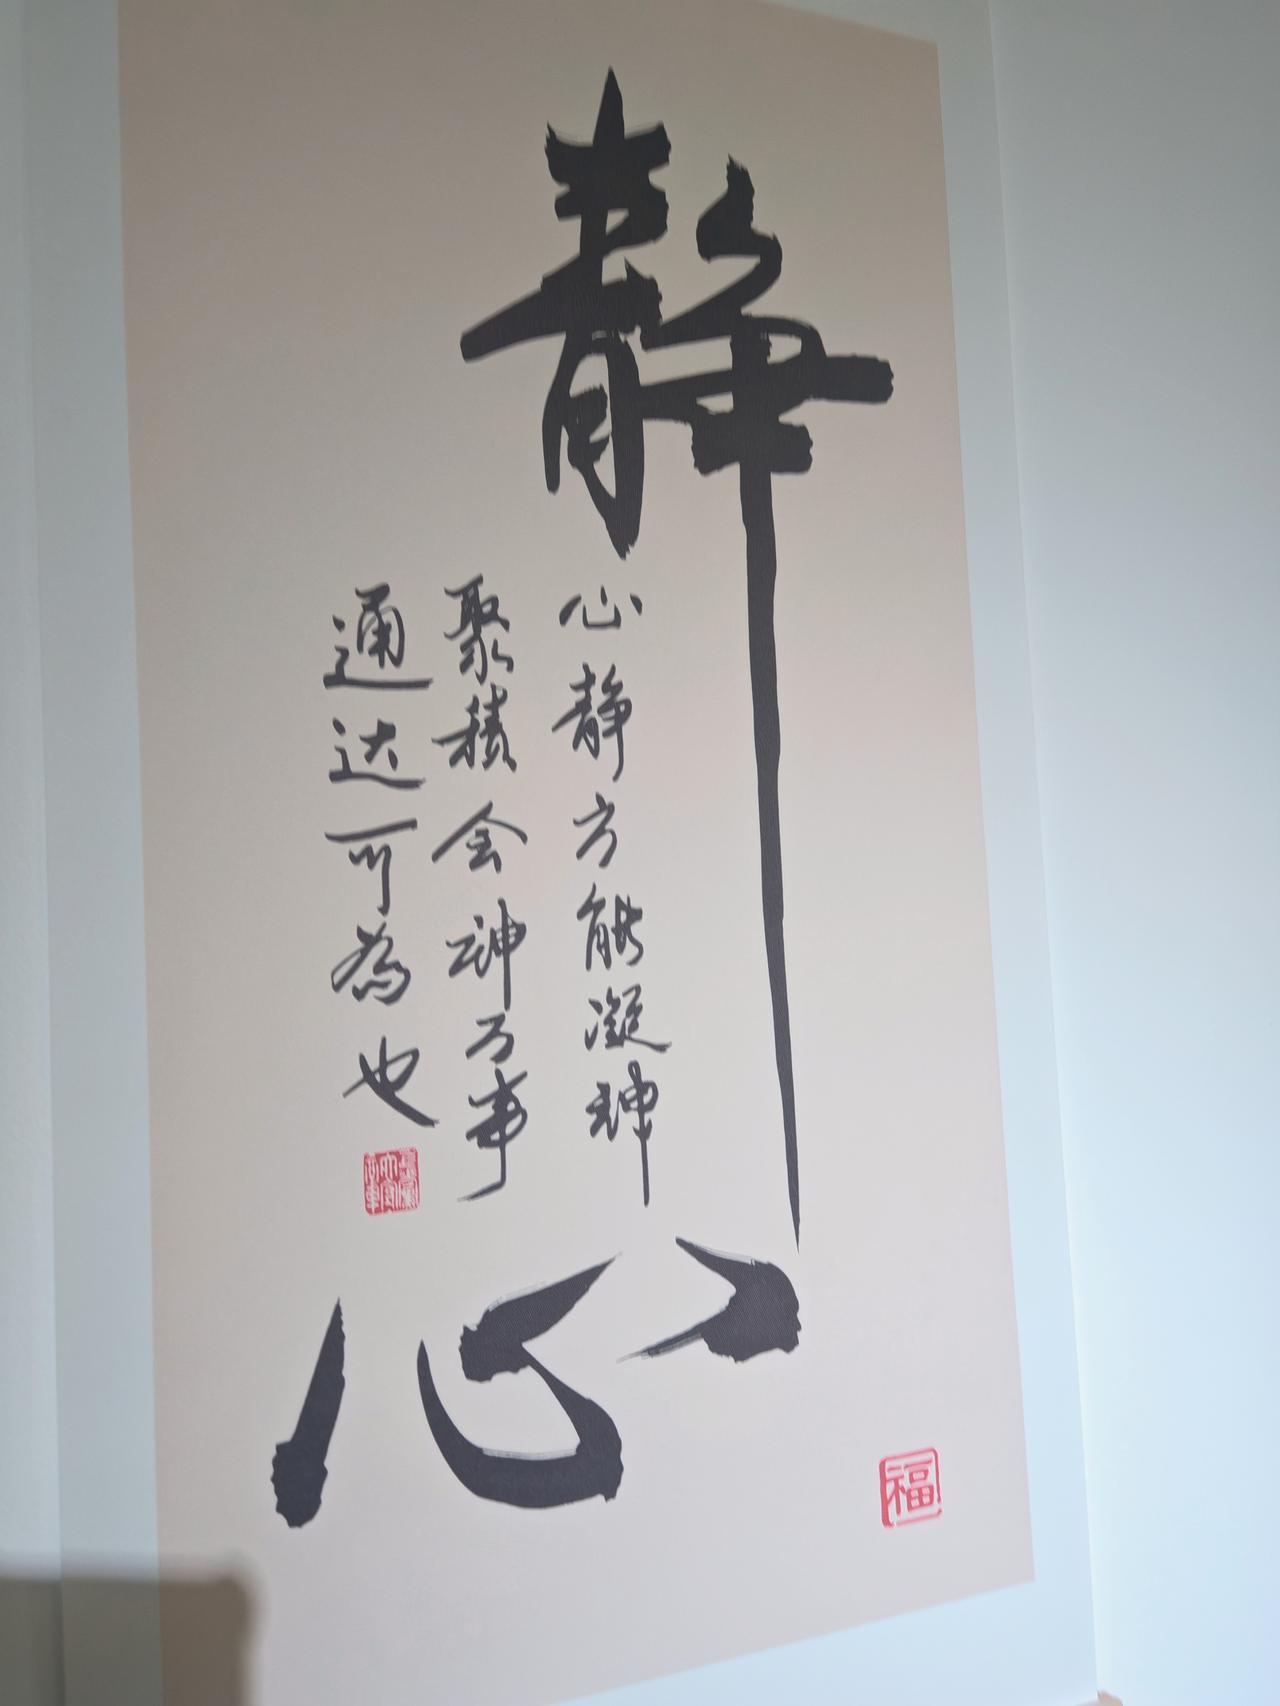 静心
心静方能凝神
聚积会神万事
通达可為也
福